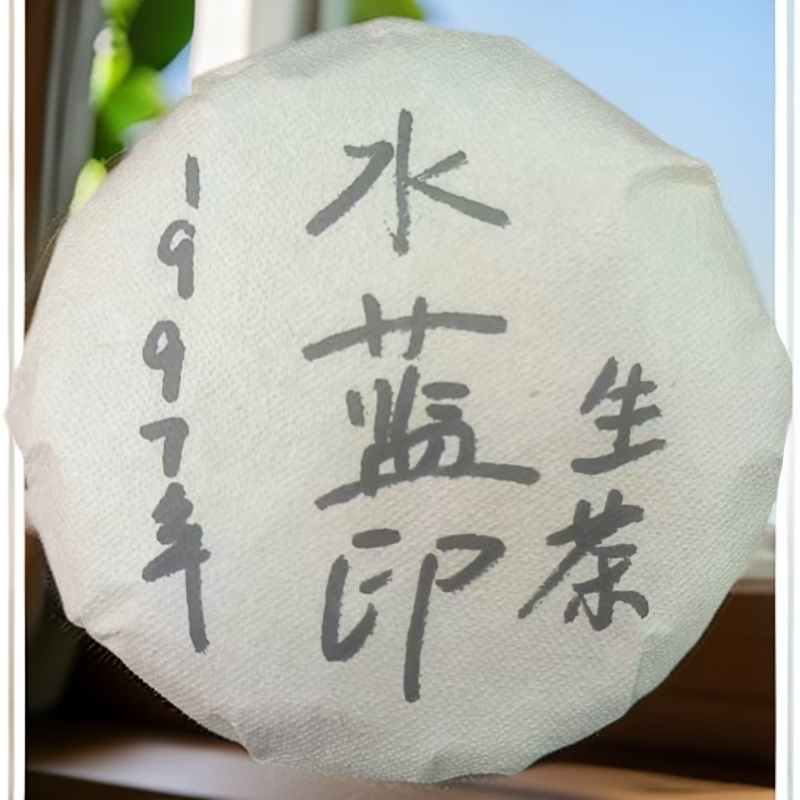 1997年
水蓝印
生茶